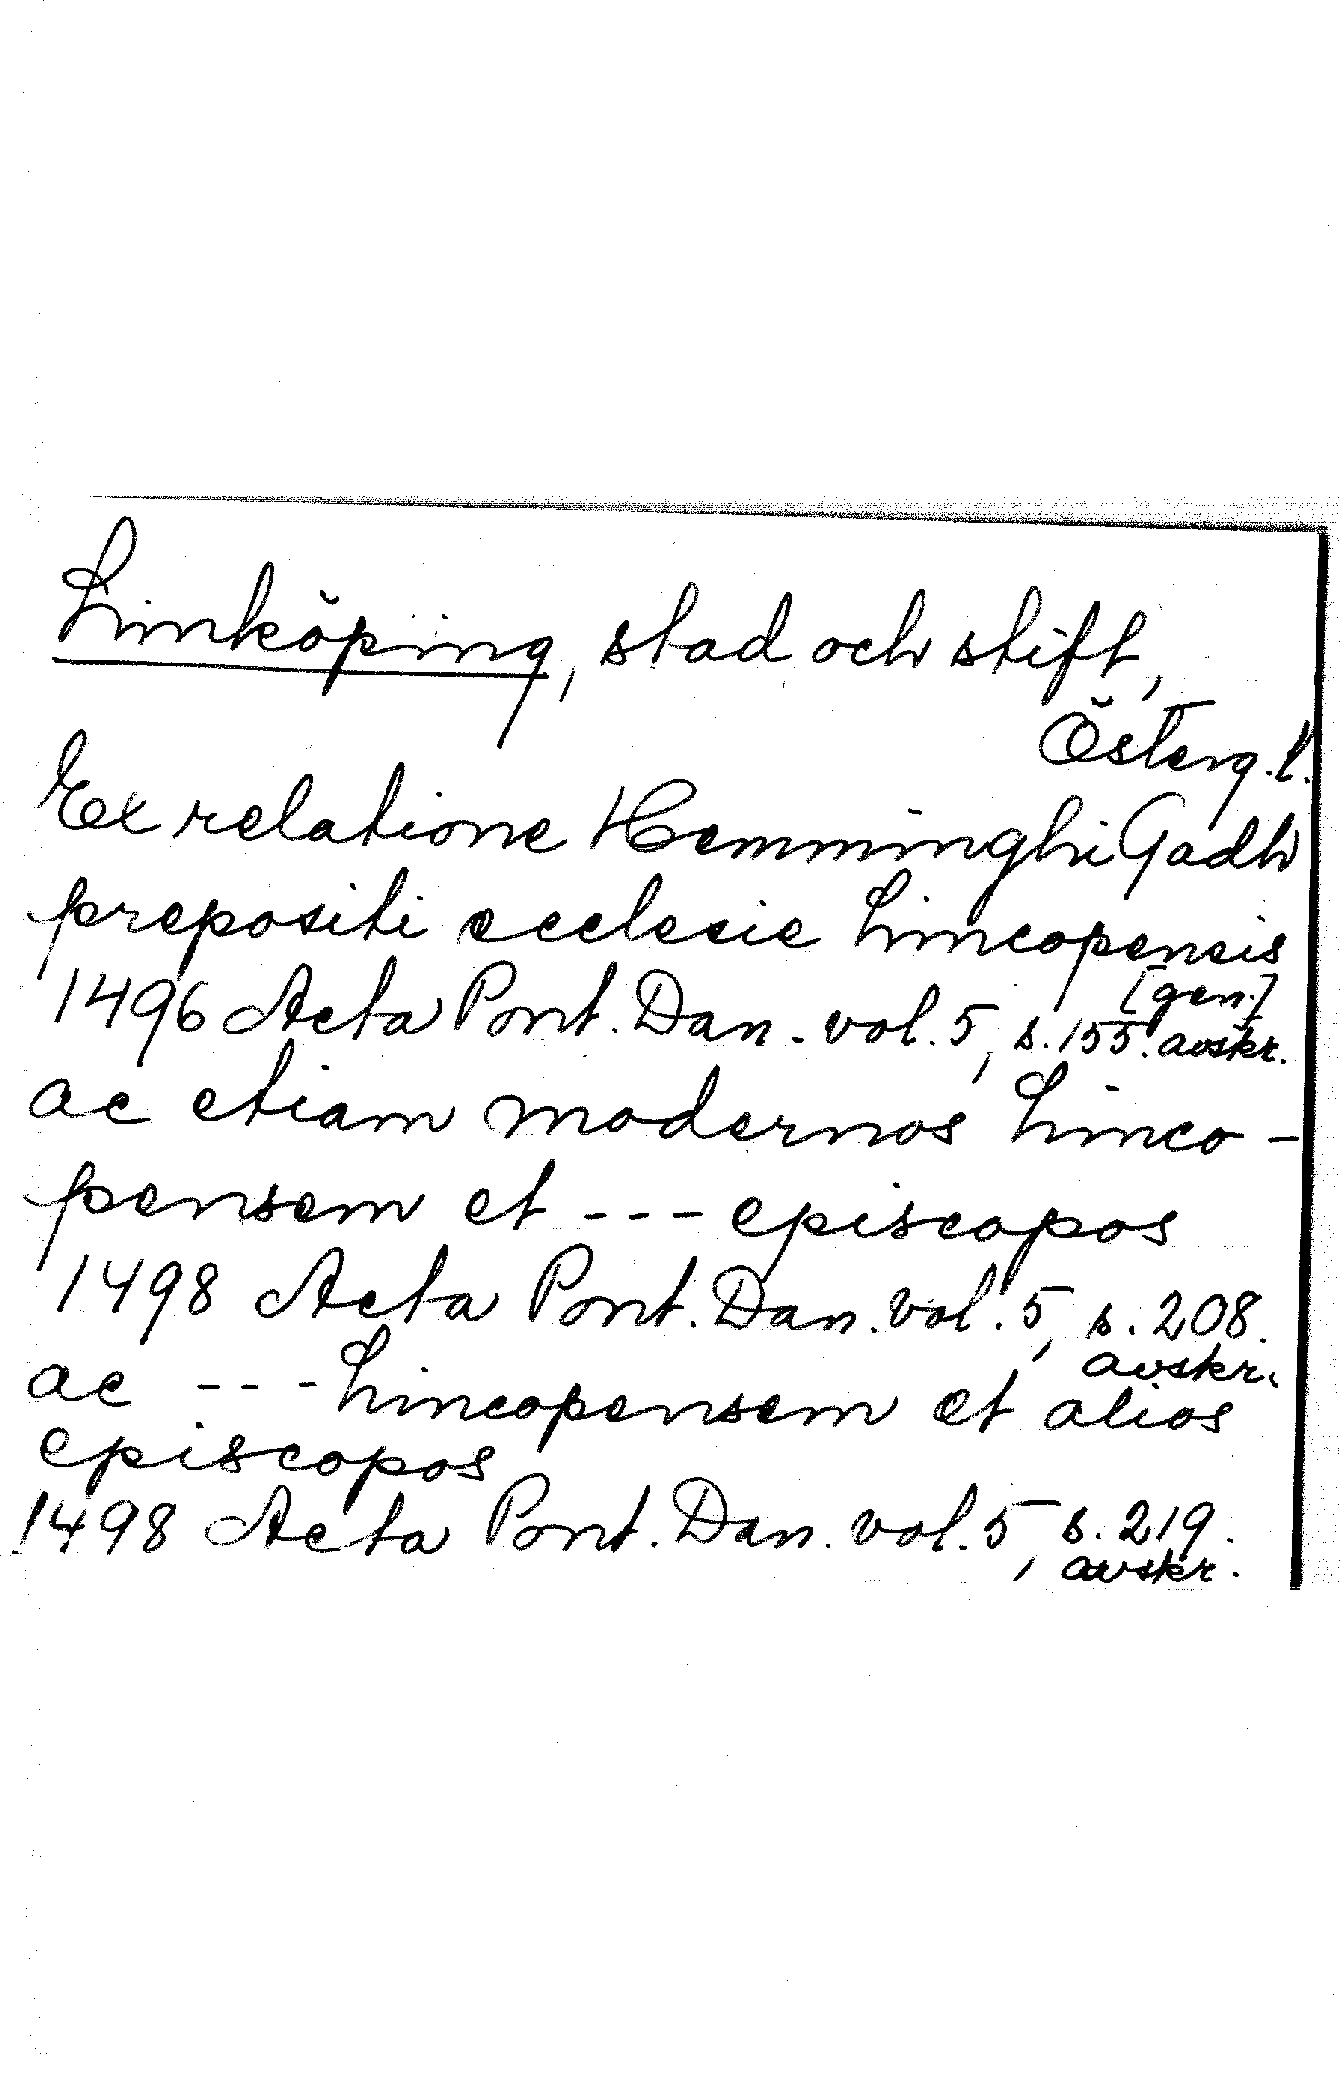 Linköping, stad och stift,
Österg.l.
Ex relatione Hemminghi Gadh
prepositi ecclesie Lincopensis
[gen.]
1496 Acta Pont. Dan. vol. 5, s. 155. avskr.
ac etiam modernos Linco-
pensem et --- episcopos
1498 Acta Pont. Dan. vol. 5, s. 208.
avskr.
ac --- Lincopensem et alios
episcopos
1498 Acta Pont. Dan. vol. 5, s. 219.
avskr.